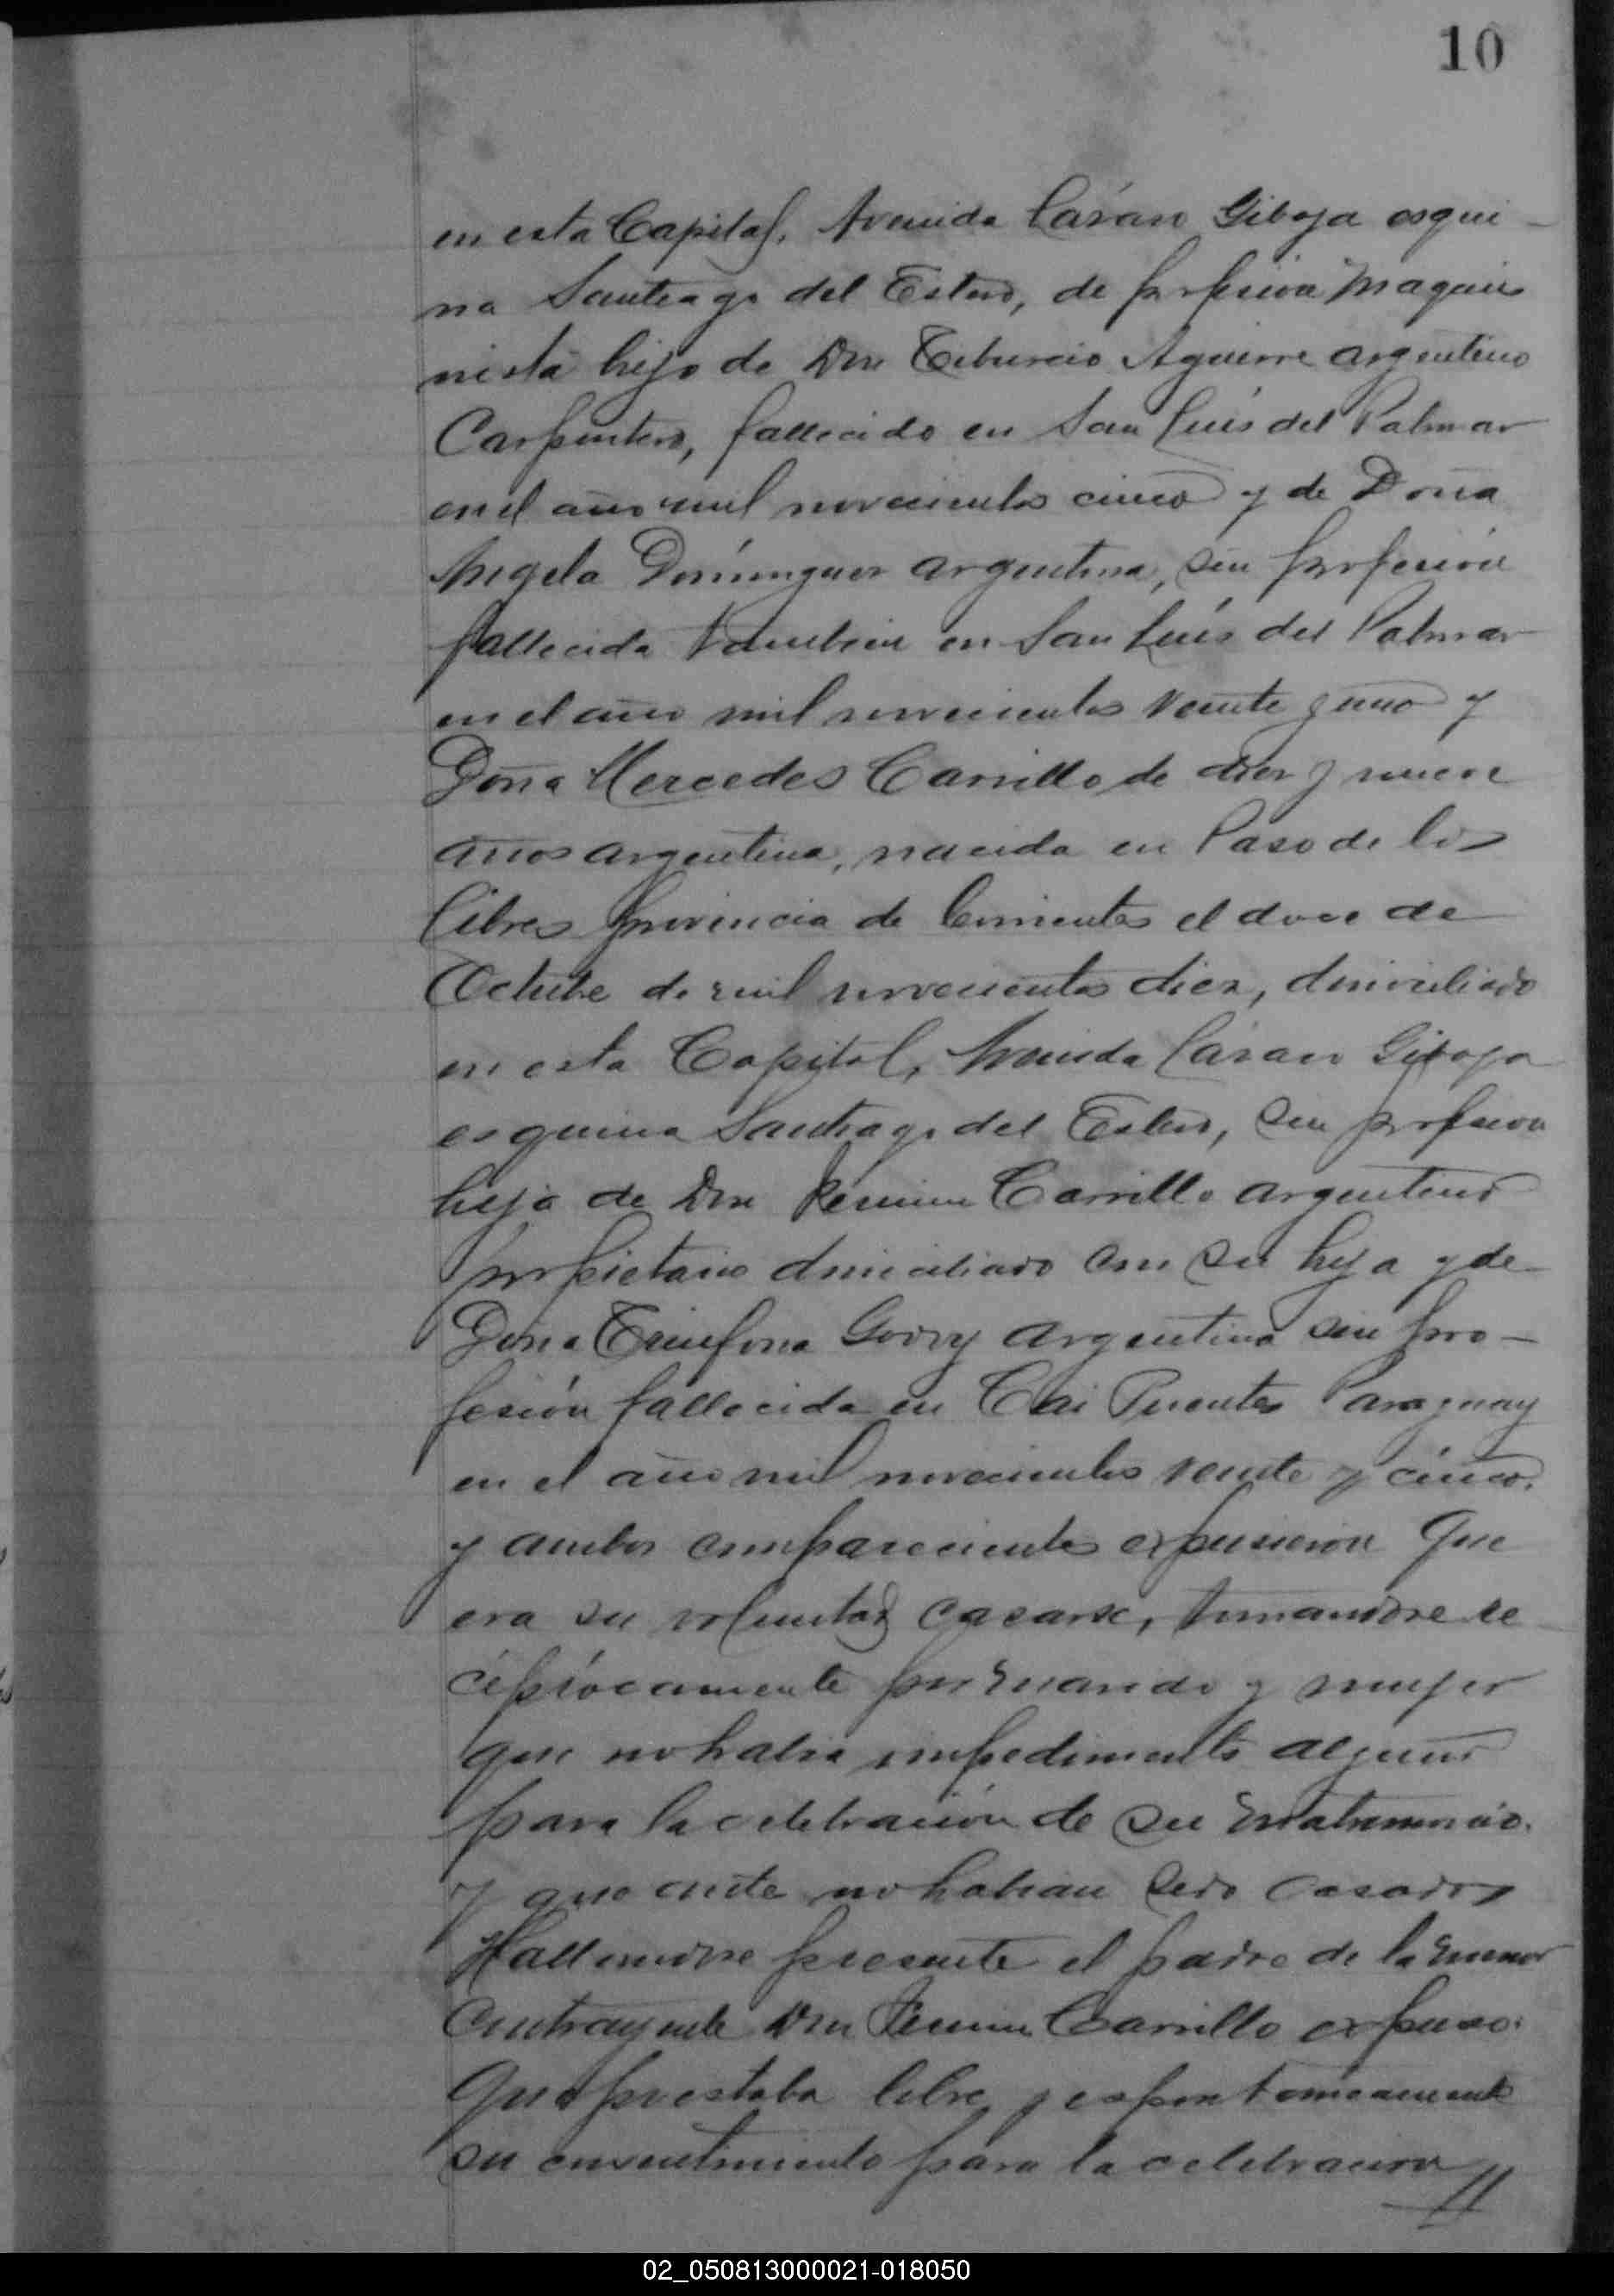 10
en esta Capital, Avenida Lázaro Giboja esqui-
na Santiago del Estero, de profesion maqui
nista hijo de Don Tiburcio Aguirre argentino
Carpintero, fallecido en San Luis del Palmar
en el año mil novecientos cinco y de Doña
Angela Domínguez argentina, sin profesión
fallecida tambien en San Luís del Palmar
en el año mil novecientos veinte y uno y
Doña Mercedes Carrillo de diez y nueve
años argentina, nacida en Paso de los
Libres provincia de Corrientes el doce de
Octubre de mil novecientos diez, domiciliado
en esta Capital, Avenida Lázaro Giboja
esquina Santiago del Estero, sin profesion
hija de Don Carrillo argentino
propietario domiciliado con su hija y de
Doña Godoy argentina sin pro-
fesión fallecida en Puentes Paraguay
en el año mil novecientos veinte y cinco.
y ambos comparecientes expusieron Que
era su voluntad casarse, tomandose re-
ciprócamente por marido y mujer
que no habia impedimento alguno
para la celebración de su matrimonio.
y que ante no habian sido casados
Hallandose presente el padre de la menor
Contrayente Don Carrillo expuso:
Que prestaba libre y espontaneamente
su consentimiento para la celebracion //
02_050813000021-018050